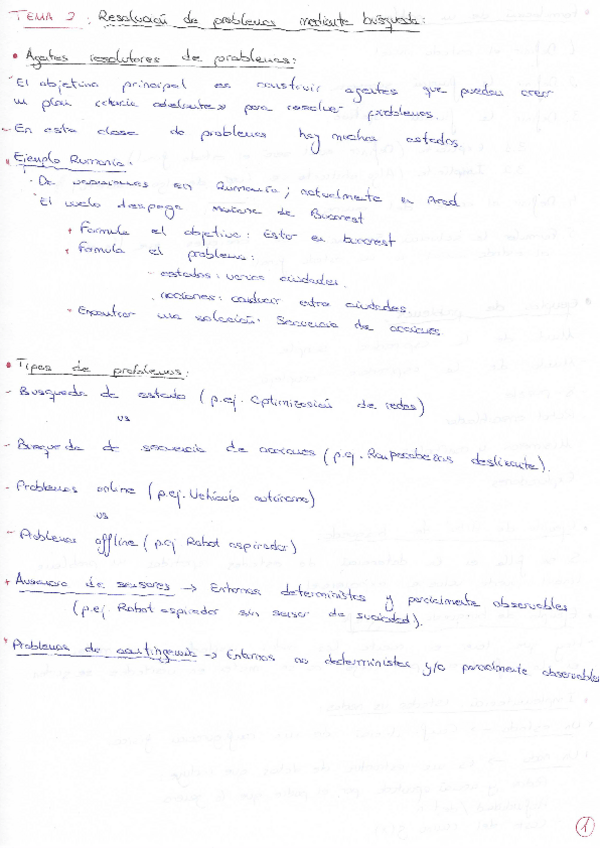 TEMA 2: Resolución de problemas mediante búsqueda:
• Agentes resolutores de problemas:
- El objetivo principal es construir agentes que puedan crear
un plan hacia adelante para resolver problemas.
- En esta clase de problemas hay muchos estados.
Ejemplo Rumania:
· De vacaciones en Rumanía; actualmente en Arad
· El vuelo despega mañana de Bucarest
+ Formula el objetivo: Estar en bucarest
+ Formula el problema:
- estados: varias ciudades.
. acciones: conducir entre ciudades.
- Encontrar una solución: Secuencia de acciones
• Tipos de problemas:
- Busqueda de estado (p.ej. Optimización de redes)
vs
- Busqueda de secuencia de acciones (p.ej. Rompecabezas deslizante).
- Problemas online (p.ej. Vehículo autónomo)
vs
- Problemas offline (p.ej Robot aspirador)
+ Ausencia de sensores → Entornos deterministas y parcialmente observables
(p.ej. Robot aspirador sin sensor de suciedad).
Problemas de contingencia → Entornos no deterministas y/o parcialmente observables
1